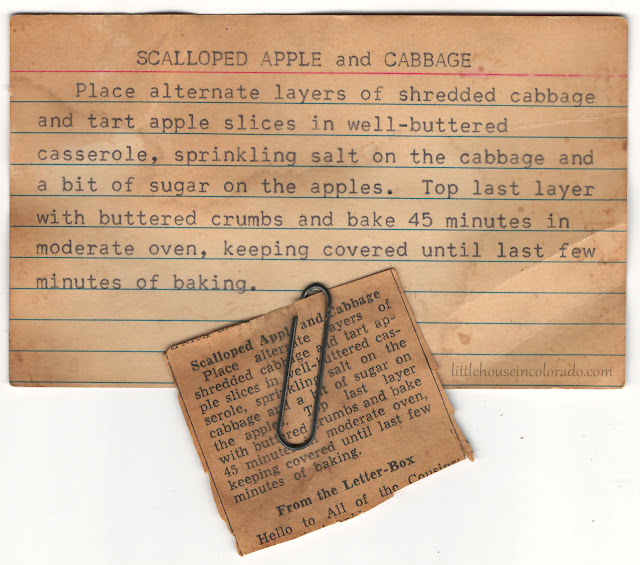 SCALLOPED APPLE and CABBAGE
Place alternate layers of shredded cabbage
and tart apple slices in well-buttered
casserole, sprinkling salt on the cabbage and
a bit of sugar on the apples. Top last layer
with buttered crumbs and bake 45 minutes in
moderate oven, keeping covered until last few
minutes of baking.
littlehouseincolorado.com
Scalloped Apple and Cabbage
Place alternate layers of
shredded cabbage and tart ap-
ple slices in well-buttered cas-
serole, sprinkling salt on the
cabbage and a bit of sugar on
the apples. Top last layer
with buttered crumbs and bake
45 minutes moderate oven,
keeping covered until last few
minutes of baking.
From the Letter-Box
Hello to All of the Cousins